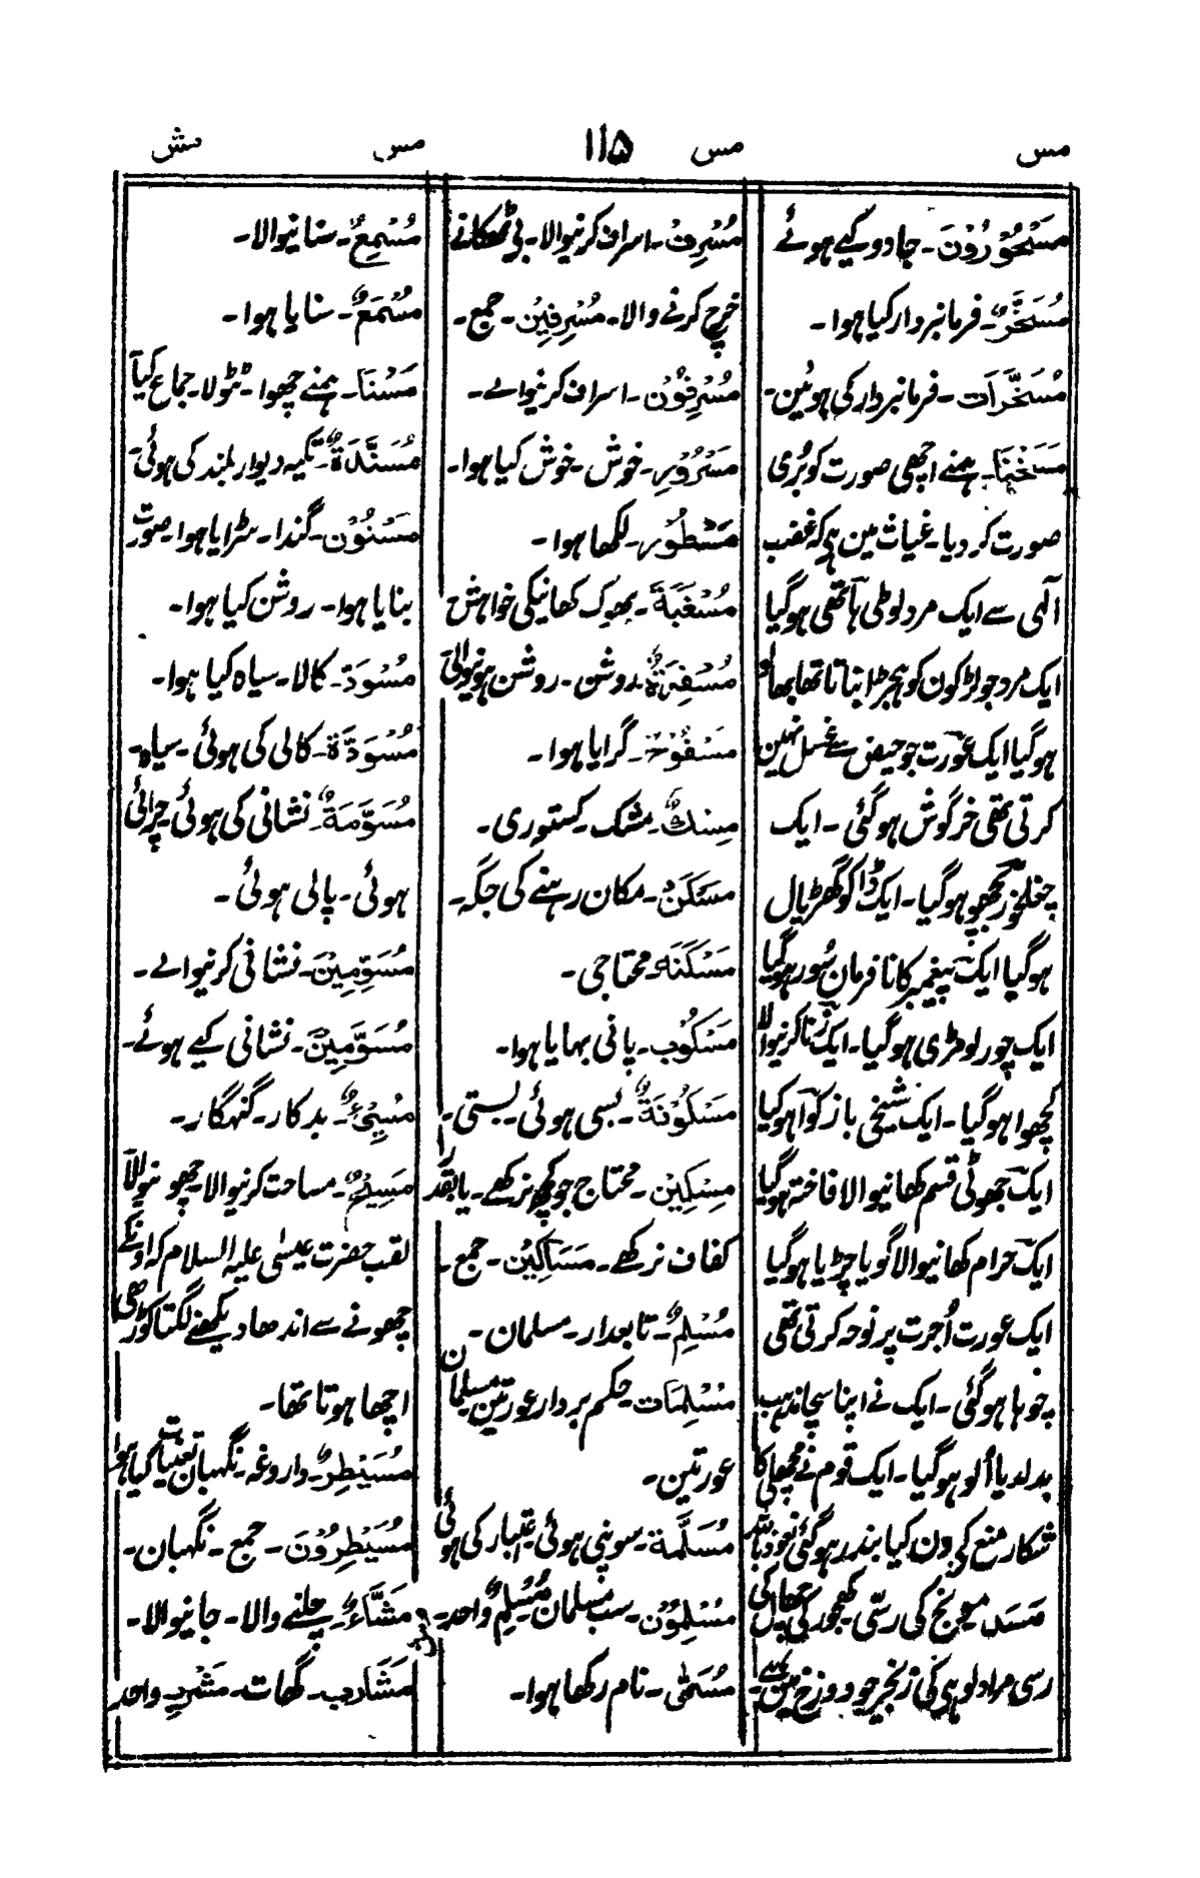 مس
مس
۱۱۵
مس
مش
مَسْحُوْرُوْنَ۔ جادو کیے ہوئے
مُسَخَّرٌ۔ فرمانبردار کیا ہوا۔
مُسَخَّرَات۔ فرمانبردار کی ہوئین۔
مَسَخْنَا۔ ہمنے اچھی صورت کو بُری
صورت کر دیا۔ غیاث مین ہی کہ غضب
آلہی سے ایک مرد لوطی ہاتھی ہوگیا
ایک مرد جو لڑکون کو ہیجڑا بناتا تھا بھالو
ہوگیا ایک عورت جو حیض سے غسل نہین
کرتی تھی خرگوش ہوگئی۔ ایک
چغلخور بچھو ہوگیا۔ ایک ڈاکو گھڑیال
ہوگیا ایک پیغمبر کا نافرمان سُور ہوگیا
ایک چور لومڑی ہوگیا۔ ایک زناکرنیوالا
کچھوا ہوگیا۔ ایک شیخی باز کوّا ہوگیا
ایک جھوٹی قسم کھانیوالا فاختہ ہوگیا
ایک حرام کھانیوالا گویا چڑیا ہوگیا
ایک عورت اُجرت پر نوحہ کرتی تھی
چوہا ہوگئی۔ ایک نے اپنا سچا مذہب
بدلدیا اُلو ہوگیا۔ ایک قوم نے مچھلی کا
شکار منع کی دن کیا بندر ہوگئی نعوذ باللہ
مَسَد مونج کی رسّی کھجور کی چھال کی
رسی مراد لوہی کی زنجیر جو دوزخ مین ہے۔
مُسْرِفٌ۔ اسراف کرنیوالا۔ بی ٹھکانے
خرچ کرنے والا۔ مُسْرِفِیْن۔ جمع۔
مُسْرِفُوْن۔ اسراف کرنیوالے۔
مَسْرُوْر۔ خوش۔ خوش کیا ہوا۔
مَسْطُوْر۔ لکھا ہوا۔
مَسْغَبَةٌ۔ بھوک کھانیکی خواہش
مُسْفِرَةٌ۔ روشن۔ روشن ہونیوالی
مَسْفُوْحٌ۔ گرایا ہوا۔
مِسْكٌ۔ مشک۔ کستوری۔
مَسْكَنٌ۔ مکان رہنے کی جگہ۔
مَسْكَنَه۔ محتاجی۔
مَسْكُوْب۔ پانی بہایا ہوا۔
مَسْكُوْنَةٌ۔ بسی ہوئی۔ بستی۔
مِسْكِیْن۔ محتاج جو کچھ نرکھے۔ یا بقدر
کفاف نرکھے۔ مَسَاكِیْن۔ جمع۔
مُسْلِمٌ۔ تابعدار۔ مسلمان۔
مُسْلِمَات۔ حکم بردار عورتین مسلمان
عورتین۔
مُسَلَّمَة۔ سونپی ہوئی۔ اعتبار کی ہوئی
مُسْلِمُوْن۔ سب مسلمان مُسْلِمٌ واحد۔
مُسَمّٰی۔ نام رکھا ہوا۔
مُسْمِعٌ۔ سنانیوالا۔
مُسْمَعٌ۔ سنایا ہوا۔
مَسْنَا۔ ہمنے چھوا۔ ٹٹولا۔ جماع کیا
مُسَنَّدَةٌ۔ تکیہ دیوار بلند کی ہوئی۔
مَسْنُوْن۔ گندا۔ سڑایا ہوا۔ صورت
بنایا ہوا۔ روشن کیا ہوا۔
مُسْوَدّ۔ کالا۔ سیاہ کیا ہوا۔
مُسْوَدَّة۔ کالی کی ہوئی۔ سیاہ۔
مُسَوَّمَةٌ۔ نشانی کی ہوئی۔ چرائی
ہوئی۔ پالی ہوئی۔
مُسَوِّمِیْنَ۔ نشانی کرنیوالے۔
مُسَوَّمِیْنَ۔ نشانی کیے ہوئے۔
مُسِیْءٌ۔ بدکار۔ گنہگار۔
مَسِیْحٌ۔ مساحت کرنیوالا۔ چھونیوالا
لقب حضرت عیسٰی علیہ السلام کہ اونکے
چھونے سے اندھا دیکھنے لگتا کوڑھی
اچھا ہوتا تھا۔
مُسَیْطِرٌ۔ داروغہ۔ نگہبان تعینات کیا ہوا
مُسَیْطِرُوْنَ۔ جمع۔ نگہبان۔
مَشَّاءٌ۔ چلنے والا۔ جانیوالا۔
مَشَارِب۔ گھاٹ۔ مَشْرَب واحد